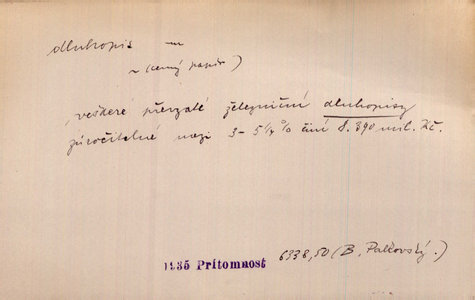 dluhopis —
~ (cenný papír)
veškeré převzaté železniční dluhopisy
zúročitelné mezi 3 – 5 1/4 % činí 8.390 mil. Kč.
1935 Prítomnost 6938,50 (B. Palkovský.)